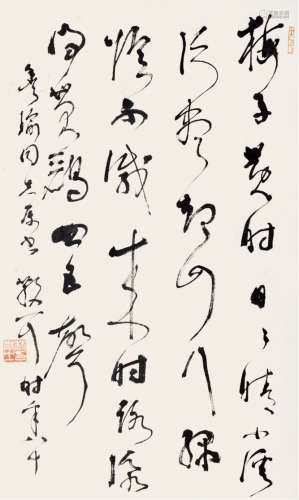 梅子黄时日日晴小溪
泛尽却山行绿
阴不减来时路添
得黄鹂四五声
瑜同志属书 散耳 时年八十